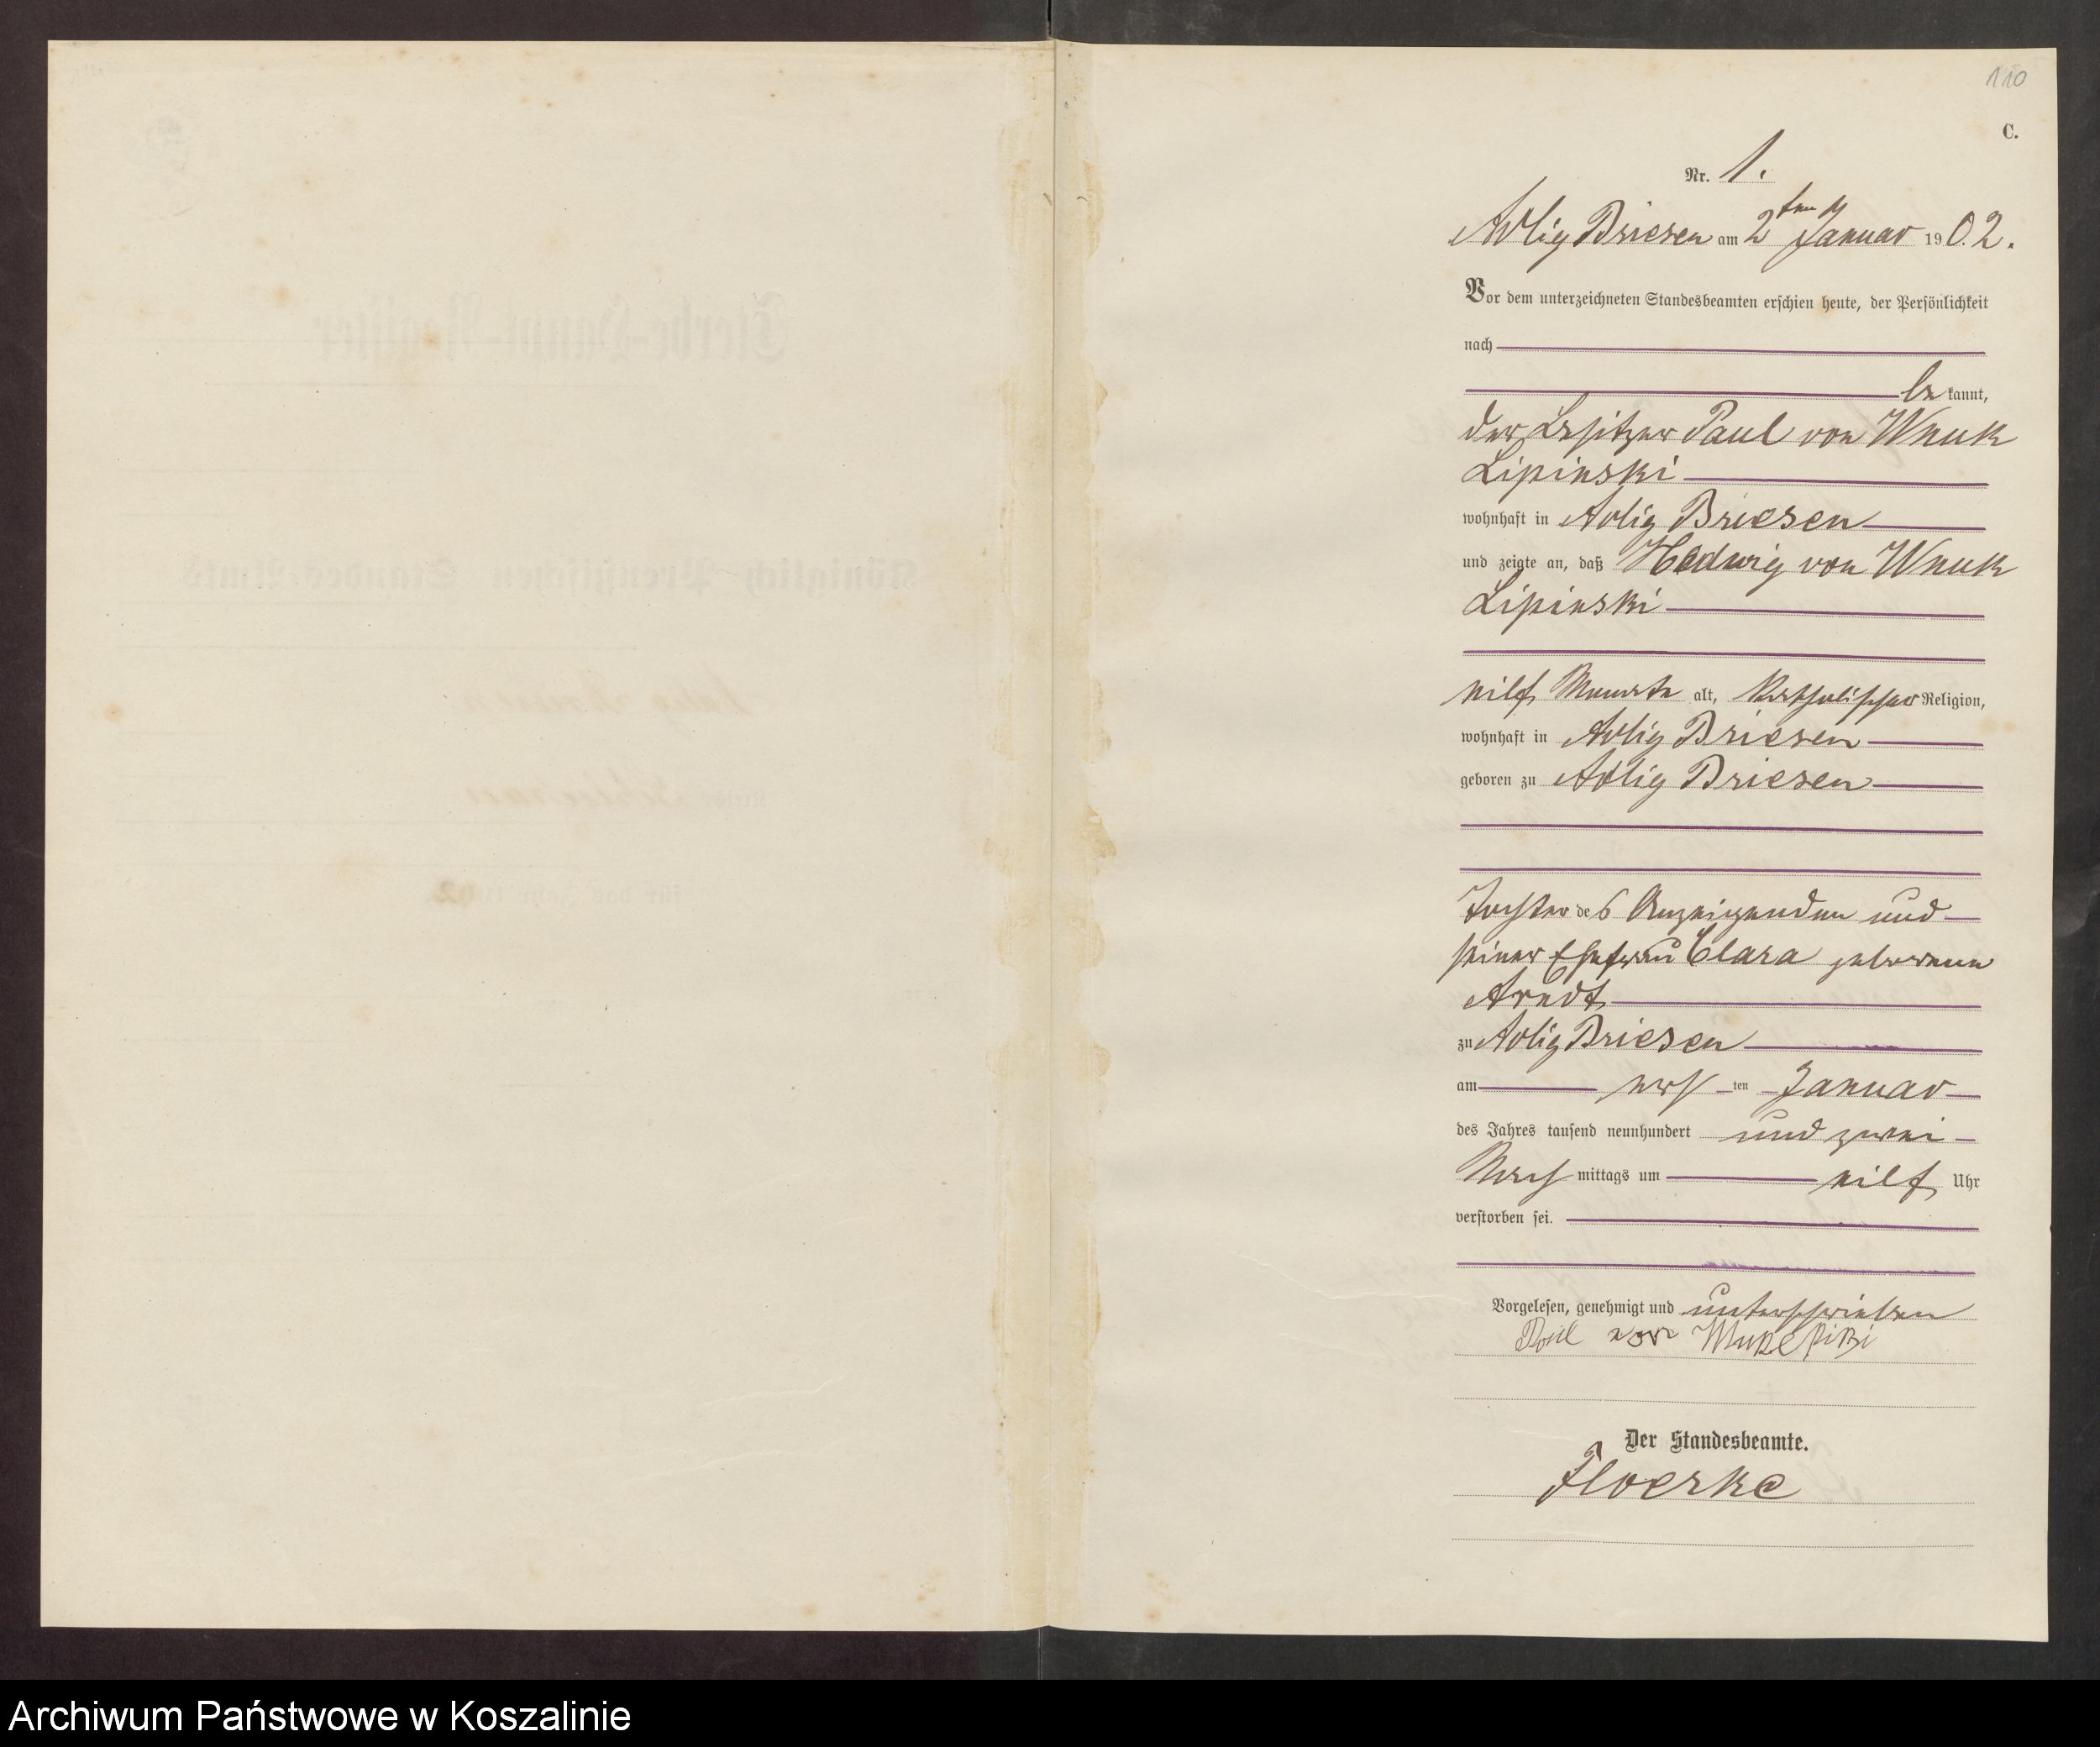 110
C.
Nr. 1.
Adlig Briesen am 2ten Januar 1902.
Vor dem unterzeichneten Standesbeamten erschien heute, der Persönlichkeit
nach
be kannt,
der Besitzer Paul von Wnuk
Lipinski
wohnhaft in Adlig Briesen
und zeigte an, daß Hedwig von Wnuk
Lipinski
elf Monate alt, katholischer Religion,
wohnhaft in Adlig Briesen
geboren zu Adlig Briesen
Tochter des Anzeigenden und
seiner Ehefrau Clara geborenen
Arndt
zu Adlig Briesen
am ersten Januar
des Jahres tausend neunhundert und zwei
Nach mittags um elf Uhr
verstorben sei.
Vorgelesen, genehmigt und unterschrieben
Paul von
Der Standesbeamte.
Floerke
Archiwum Państwowe w Koszalinie